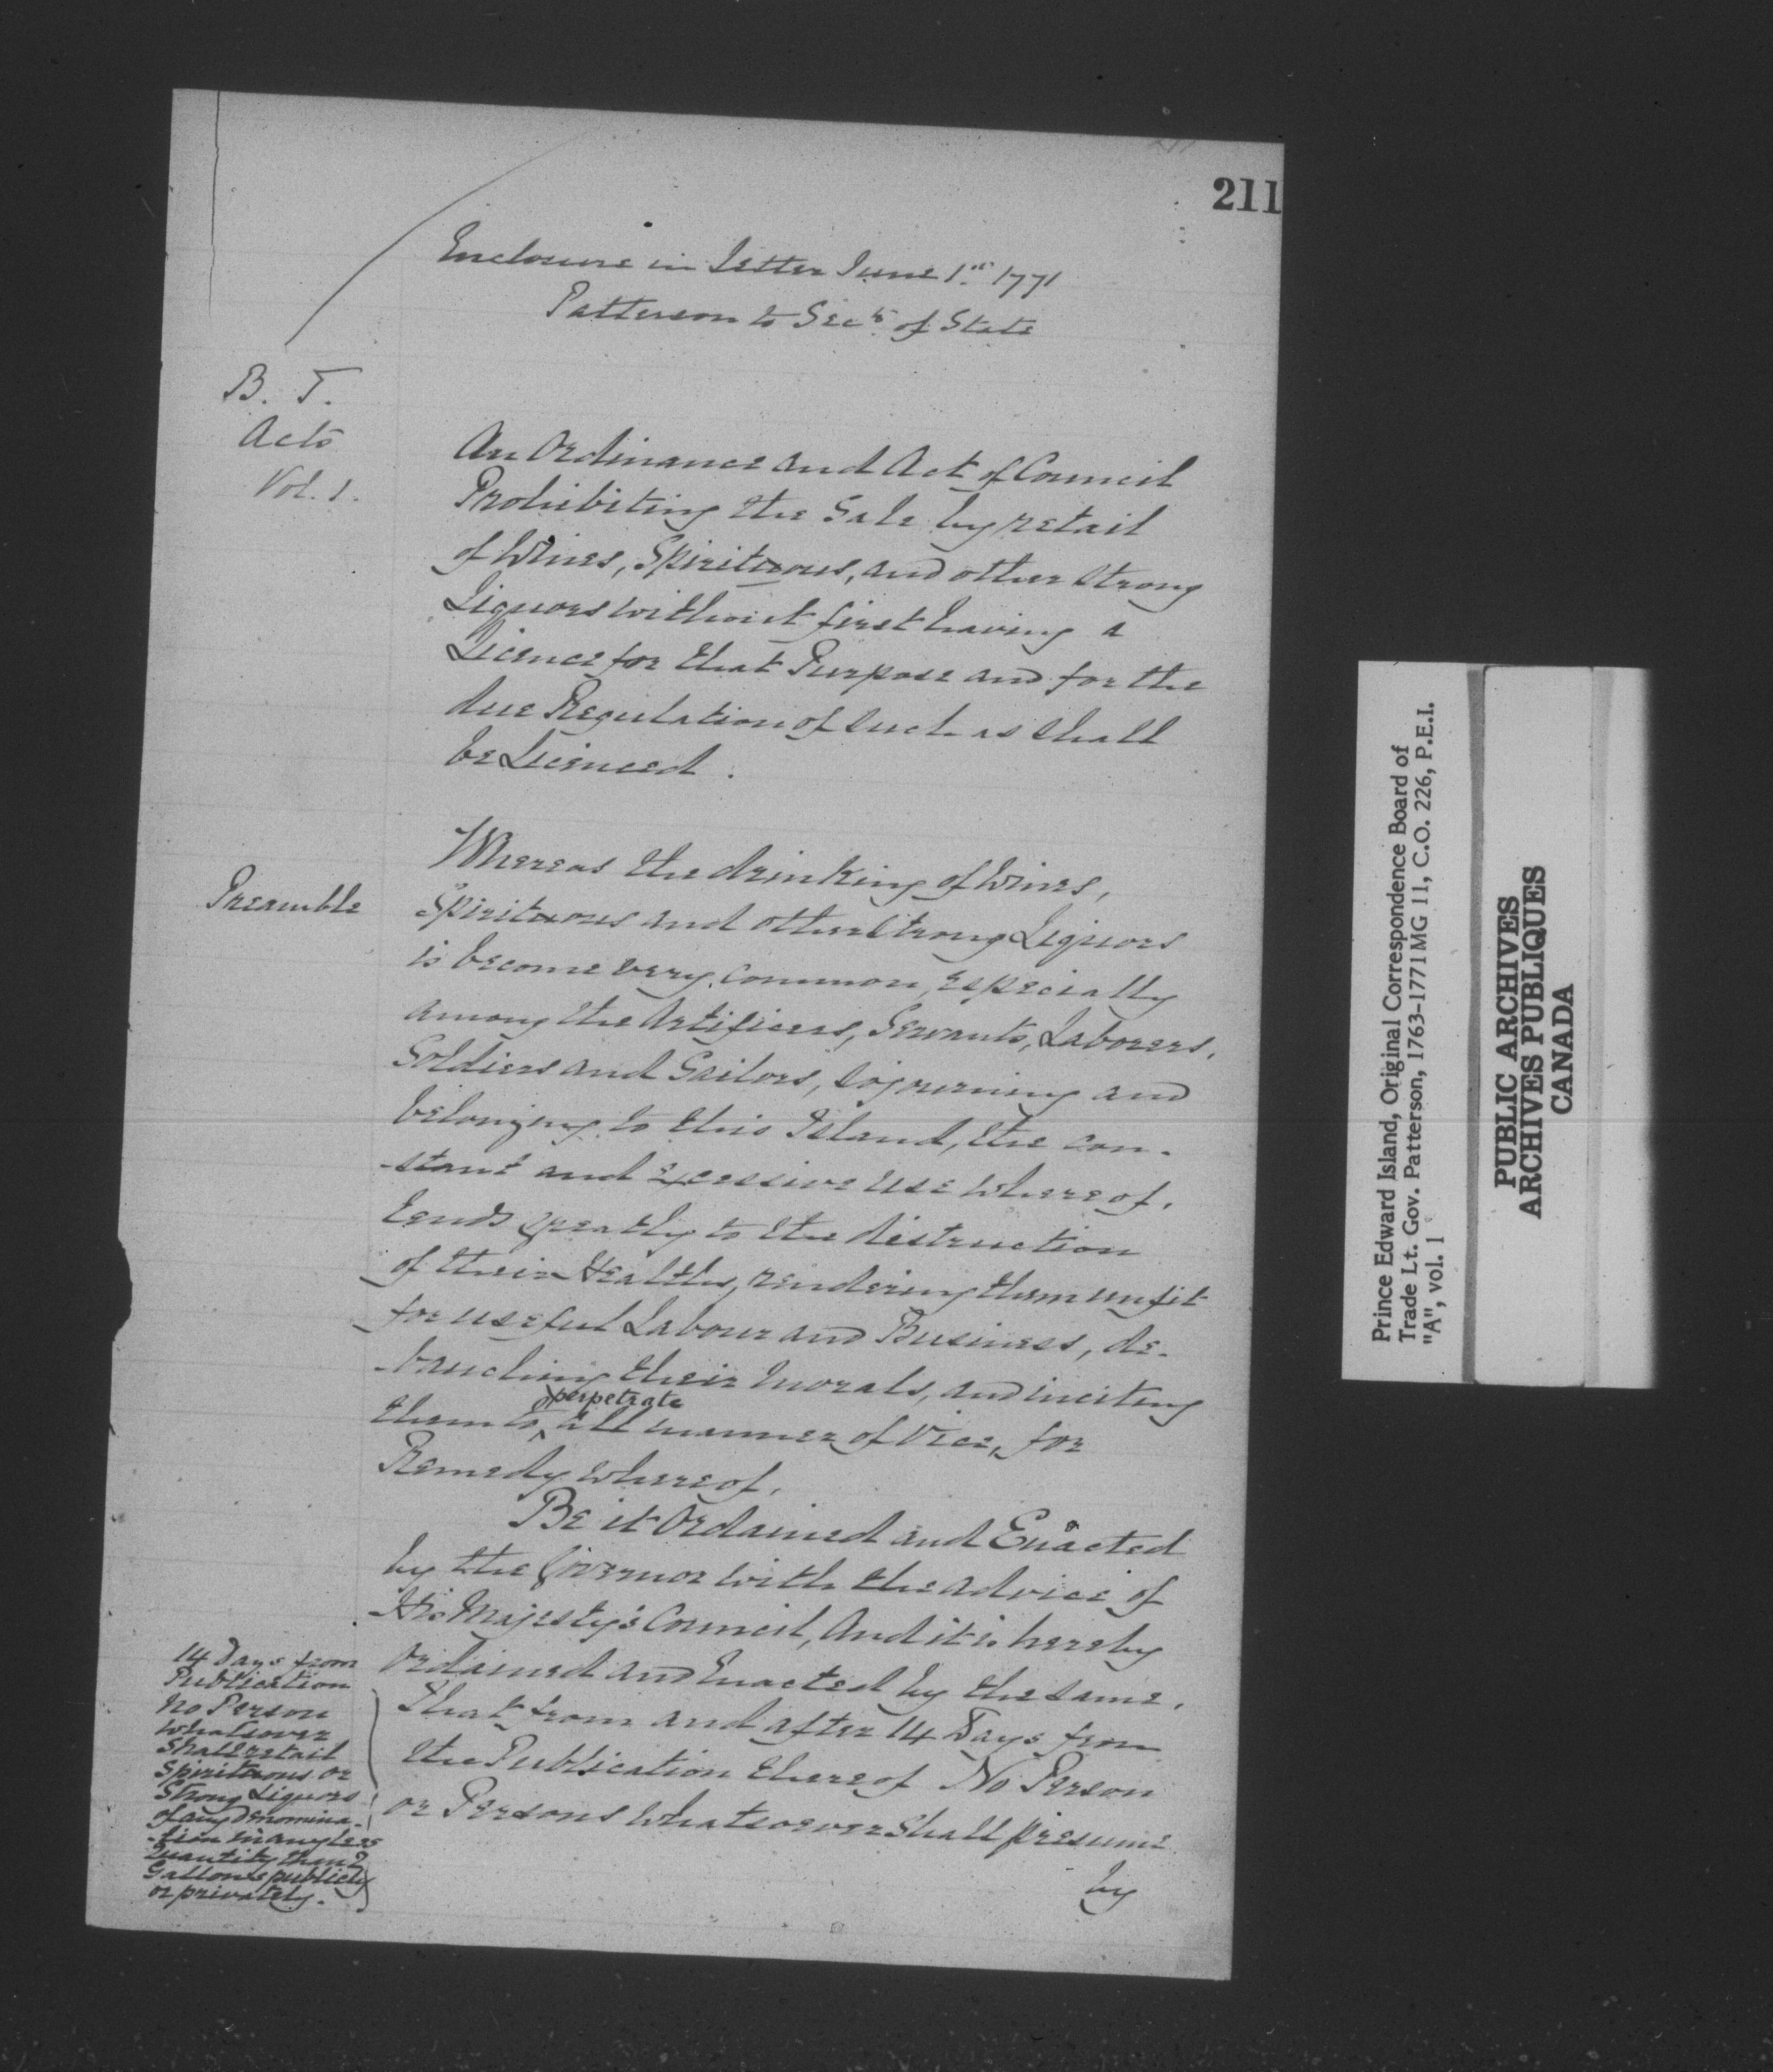 211
Enclosure in Letter June 1st 1771
Patterson to Secy of State
B. T.
Acts
Vol. 1.
An Ordinance and Act of Council
Prohibiting the Sale by retail
of Wines, Spirituous, and other Strong
Liquors without first having a
Licence for that Purpose and for the
due Regulation of Such as Shall
be Licenced.
Preamble
Whereas the drinking of Wines,
Spirituous and other Strong Liquors
is become very common, especially
among the Artificers, Servants, Laborers,
Soldiers and Sailors, Sojourning and
belonging to this Island, the con-
-stant and excessive use whereof,
tends greatly to the distruction
of their Healths, rendering them unfit
for useful Labour and Business, de-
-bauching their Morals, and inciting
them to perpetrate all manner of Vice, for
Remedy whereof,
Be it Ordained and Enacted
by the Governor with the advice of
His Majesty's Council, And it is hereby
Ordained and Enacted by the Same,
That from and after 14 Days from
the Publication thereof No Person
or Persons Whatsoever Shall presume
by
14 Days from
Publication
No Person
Whatsover
Shall retail
Spirituous or
Strong Liquors
of any Denomina-
-tion in any less
Quantity than 2
Gallons publicly
or privately.
Prince Edward Island, Original Correspondence Board of
Trade Lt. Gov. Patterson, 1763-1771 MG 11, C.O. 226, P.E.I.
"A", vol. 1
PUBLIC ARCHIVES
ARCHIVES PUBLIQUES
CANADA